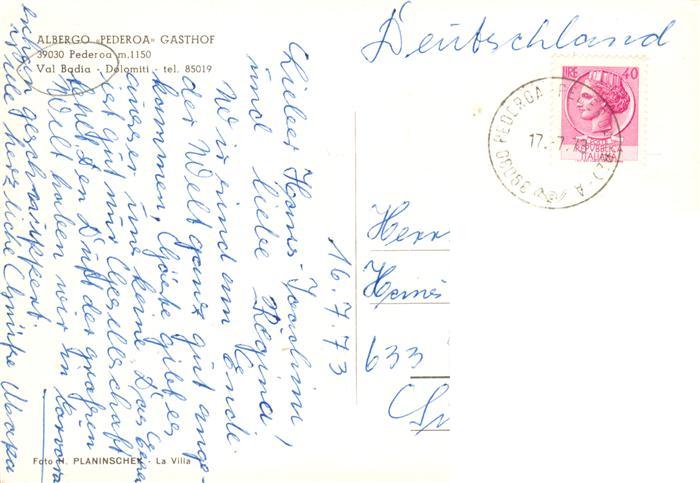 ALBERGO «PEDEROA» GASTHOF
39030 Pederoa m. 1150
Val Badia - Dolomiti - tel. 85019
Deutschland
LIRE 40
POSTE
REPVBBLICA
ITALIANA
39030 PEDEROA
17.-7.73
16.7.73
Lieber Hans-Joachim,
und liebe Regina
Wir sind am Ende
der Welt ganz gut ange-
kommen, Gäste gibt es
ausser uns keine. Das
ist gut nur Gesellschaft
fehlt. Den Duft der großen
Welt haben wir in Corvara
geschnuppert.
viele herzliche Grüße
Herr
Heinr
633
Foto H. PLANINSCHEK - La Villa